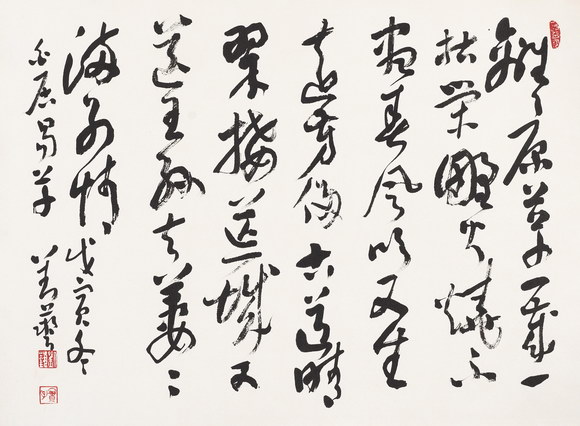 離離原上草一歲一
枯榮野火燒不
盡春風吹又生
遠芳侵古道晴
翠接荒城又
送王孫去萋〻
滿別情 戊寅冬
白居易草 劉藝